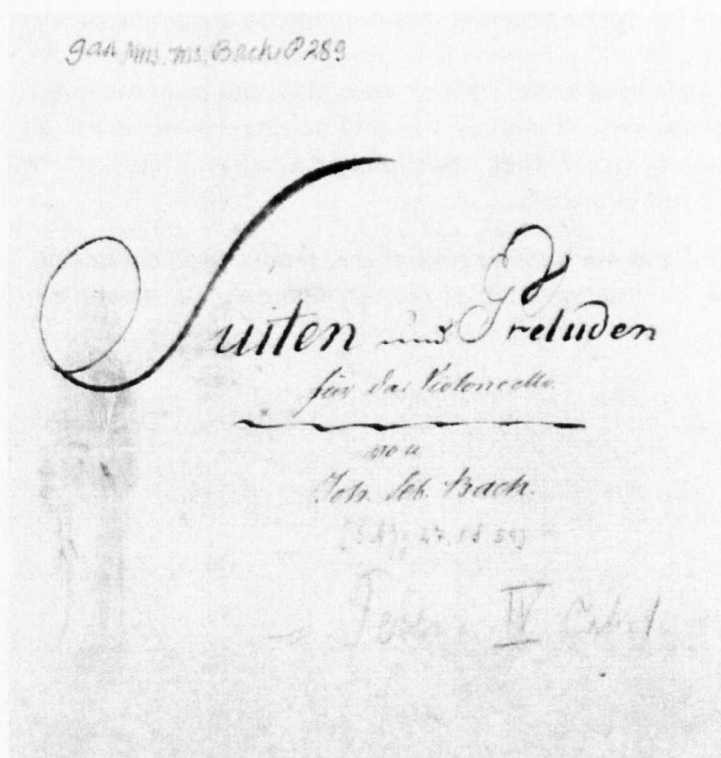 Mus. ms. Bach P 289
Suiten und Preluden
für das Violoncello.
von
Joh. Seb. Bach.
IV